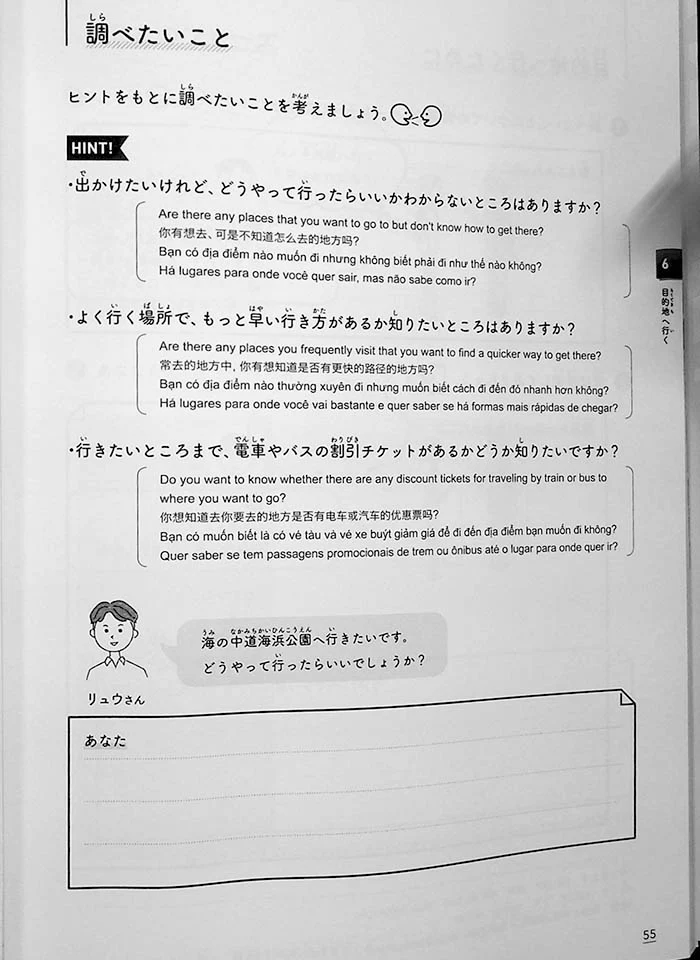 調べたいこと
ヒントをもとに調べたいことを考えましょう。
HINT!
・出かけたいけれど、どうやって行ったらいいかわからないところはありますか？
Are there any places that you want to go to but don't know how to get there?
你有想去、可是不知道怎么去的地方吗?
Bạn có địa điểm nào muốn đi nhưng không biết phải đi như thế nào không?
Há lugares para onde você quer sair, mas não sabe como ir?
・よく行く場所で、もっと早い行き方があるか知りたいところはありますか？
Are there any places you frequently visit that you want to find a quicker way to get there?
常去的地方中，你有想知道是否有更快的路径的地方吗?
Bạn có địa điểm nào thường xuyên đi nhưng muốn biết cách đi đến đó nhanh hơn không?
Há lugares para onde você vai bastante e quer saber se há formas mais rápidas de chegar?
・行きたいところまで、電車やバスの割引チケットがあるかどうか知りたいですか？
Do you want to know whether there are any discount tickets for traveling by train or bus to
where you want to go?
你想知道去你要去的地方是否有电车或汽车的优惠票吗?
Bạn có muốn biết là có vé tàu và vé xe buýt giảm giá để đi đến địa điểm bạn muốn đi không?
Quer saber se tem passagens promocionais de trem ou ônibus até o lugar para onde quer ir?
海の中道海浜公園へ行きたいです。
どうやって行ったらいいでしょうか？
リュウさん
あなた
6
目的地へ行く
55